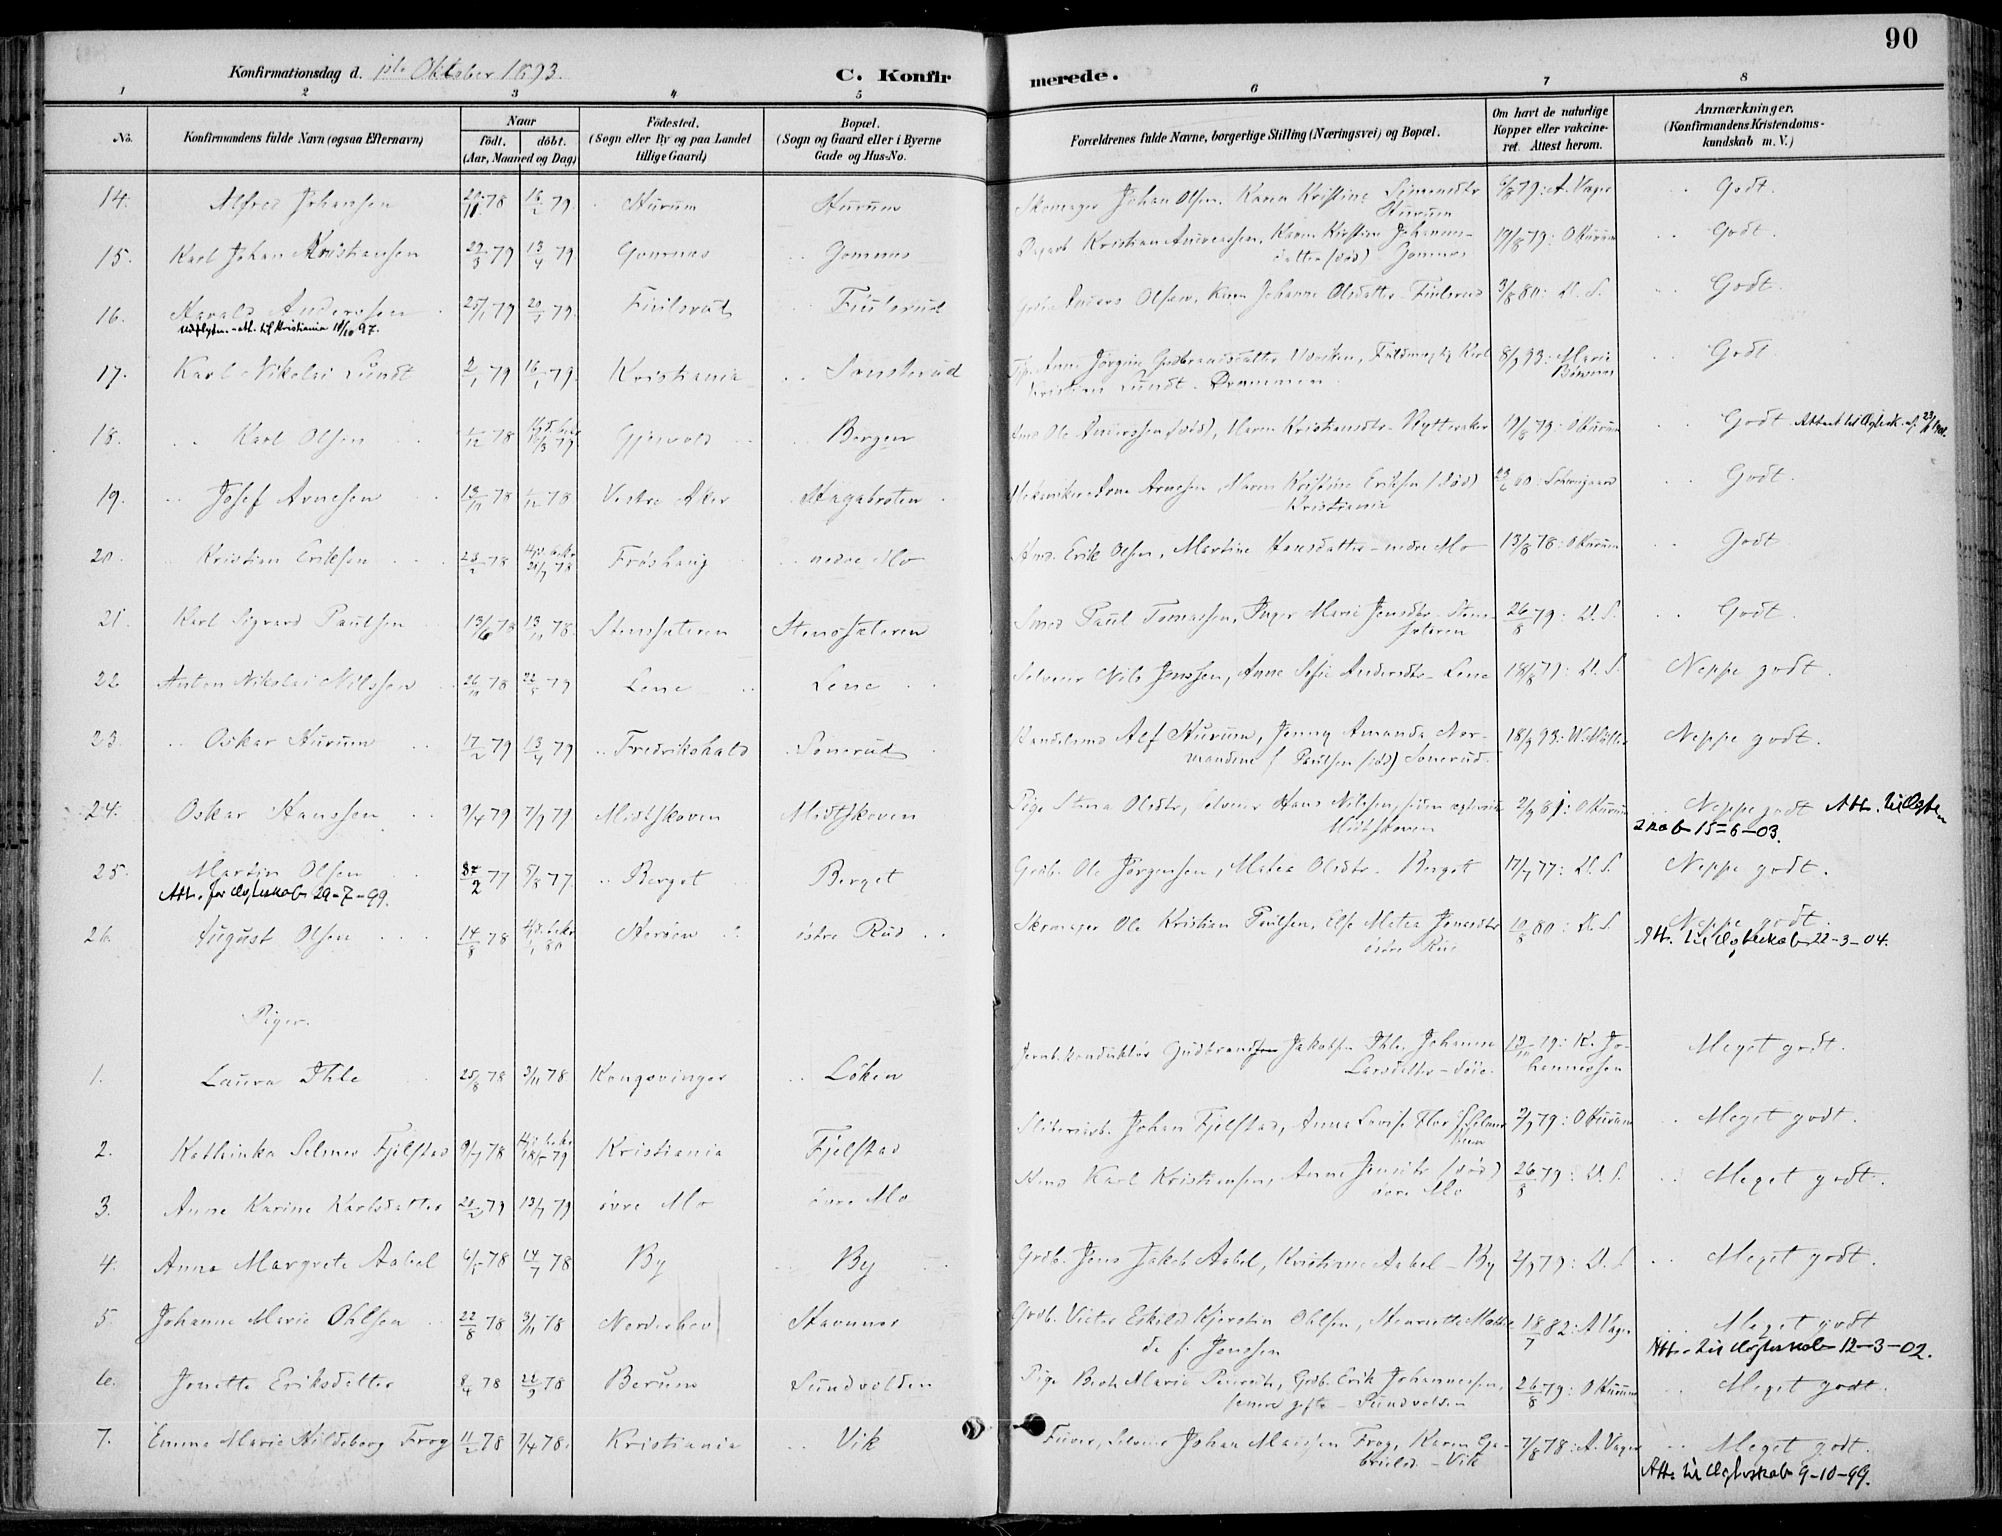 90
Konfirmationsdag d. 1ste Oktober 1893. C. Konfirmerede.
1 2 3 4 5 6 7 8
No. Konfirmandens fulde Navn (ogsaa Efternavn) Naar Födt. döbt. (Aar, Maaned og Dag) Födested. (Sogn eller By og paa Landet tillige Gaard) Bopæl. (Sogn og Gaard eller i Byerne Gade og Hus-No. Forældrenes fulde Navne, borgerlige Stilling (Næringsvei) og Bopæl. Om havt de naturlige Kopper eller vakcineret. Attest herom. Anmærkninger. (Konfirmandens Kristendomskundskab m. V.)
14. Alfred Johansen 78 16/2 79. Hurum Hurum Skomager Johan Olsen. Karen Kristine Simensdtr Hurum 6/8 79: A. Vager Godt.
15. Karl Johan Kristiansen 29/3 79 13/4 79 Gomnæs Gomnæs Kristian Anderssen, Karen Kirstine Johannesdatter (död) Gomnæs 19/8 79: O Hurum Godt
16. Harald Anderssen 25/1 79 79. Fiulsrud Fiulsrud Anders Olsen, Karen Johanne Olsdatter Fiulsrud 3/8 80: D. S. Godt.
Udflytn.-att. til Kristiania 18/10 97.
17. Karl Nikolai Lundt 2/1 79 16/1 79. Kristiania Sonsterud Anne Jörgine Gudbrandsdatter, Fuldmægtig Karl Kristian Lundt. Drammen. 8/9 93: Marie Godt
18. Karl Olsen 1/12 78 79 Gjesvold Bergen Ole Anderssen (död), Maren Kristiansdtr Nytteraker 19/8 79: O Hurum Godt
19. Josef Arnesen 13/11 78 1/12 78 Vestre Aker Hagabraten Mekaniker Arne Arnesen, Maren Kristine Eriksen (död) Kristiania Godt.
20. Kristian Eriksen 78 78 Fröshaug nedre Mo Hmd. Erik Olsen, Martine Hansdatter - nedre Mo 13/8 78: O Hurum Godt
21. Karl Sigvard Paulsen 13/6 78 13/10 78. Stenssæteren Stenssæteren Smed Paul Tomassen, Inger Marie Jensdtr - Stenssæteren 26/8 79: D. S. Godt.
22 Anton Nikolai Nilssen 26/11 78 79 Lene Lene Selveier Nils Jonssen, Anne Sofie Andersdtr - Lene 18/8 79: D. S. Neppe godt.
23. Oskar Hurum 17/2 79 13/4 79 Fredrikshald Sonerud Handelsmd Alf Hurum, Jenny Amanda Normandine f. Paulsen (död) Sonerud. 18/9 93: W. Möller Neppe godt.
24. Oskar Hanssen 9/4 79 7/9 79. Midtskoven Midtskoven Pige Stina Olsdtr, Selveier Hans Nilssen, siden ægteviede Midtskoven 2/9 81: O Hurum Neppe godt Att. til Ægteskab 15-6-03.
25. Martin Olsen 77 5/8 77. Berget Berget Grdb. Ole Jörgensen, Matea Olsdtr. Berget 17/7 77: D. S. Neppe godt.
Att. for Ægteskab 29-7-99.
26. August Olsen 14/8 78 80 östre Rud Skomager Ole Kristian Paulsen, Else Matea Jonasdtr östre Rud 10/8 80: D. S. Neppe godt.
Att. til Ægteskab 22-3-04.
Piger.
1. Laura Ihle 25/8 78 3/11 78 Kongsvinger Löken Jernb.konduktör Gudbrand Jakobsen Ihle, Johanne Larsdatter - 79: K. Johannessen Meget godt.
2. Kathinka Selmer Fjelstad 9/7 78 79 Kristiania Fjelstad Sliberiarb. Johan Fjelstad, Anna Lovise 2/9 79: O Hurum Meget godt.
3. Anne Karine Karlsdatter 79 13/7 79 övre Mo övre Mo Hmd Karl Kristiansen, Anne Jensdtr (död) övre Mo 26/8 79: D. S. Meget godt.
4. Anna Margrete Aabel 6/5 78 14/7 78 By By Grdb. Jens Jakob Aabel, Kristiane Aabel - By 2/9 79: D. S Meget godt.
5. Johanne Marie Ohlsen 22/8 78 3/11 78 Norderhov Stavnæs Grdb. Victor Eskild Kjerstin Ohlsen, Henriette Mathilde f. Jenssen 18/7 82: A Vager Meget godt
Att. til Ægteskab 12-3-02.
6. Jonette Eriksdatter 8/4 78 22/9 78 Berum Sundvolden Pige Berte Marie, Grdb. Erik Johannessen, senere gifte - Sundvolden 26/8 79: O Hurum Meget godt.
7. Emma Marie Hildeborg Frog 11/2 78 7/4 78. Kristiania Vik Selveier Johan Frog, Karen Gabrielsd. - Vik 7/8 78: A. Vager Meget godt.
Att. til Ægteskab 9-10-99.